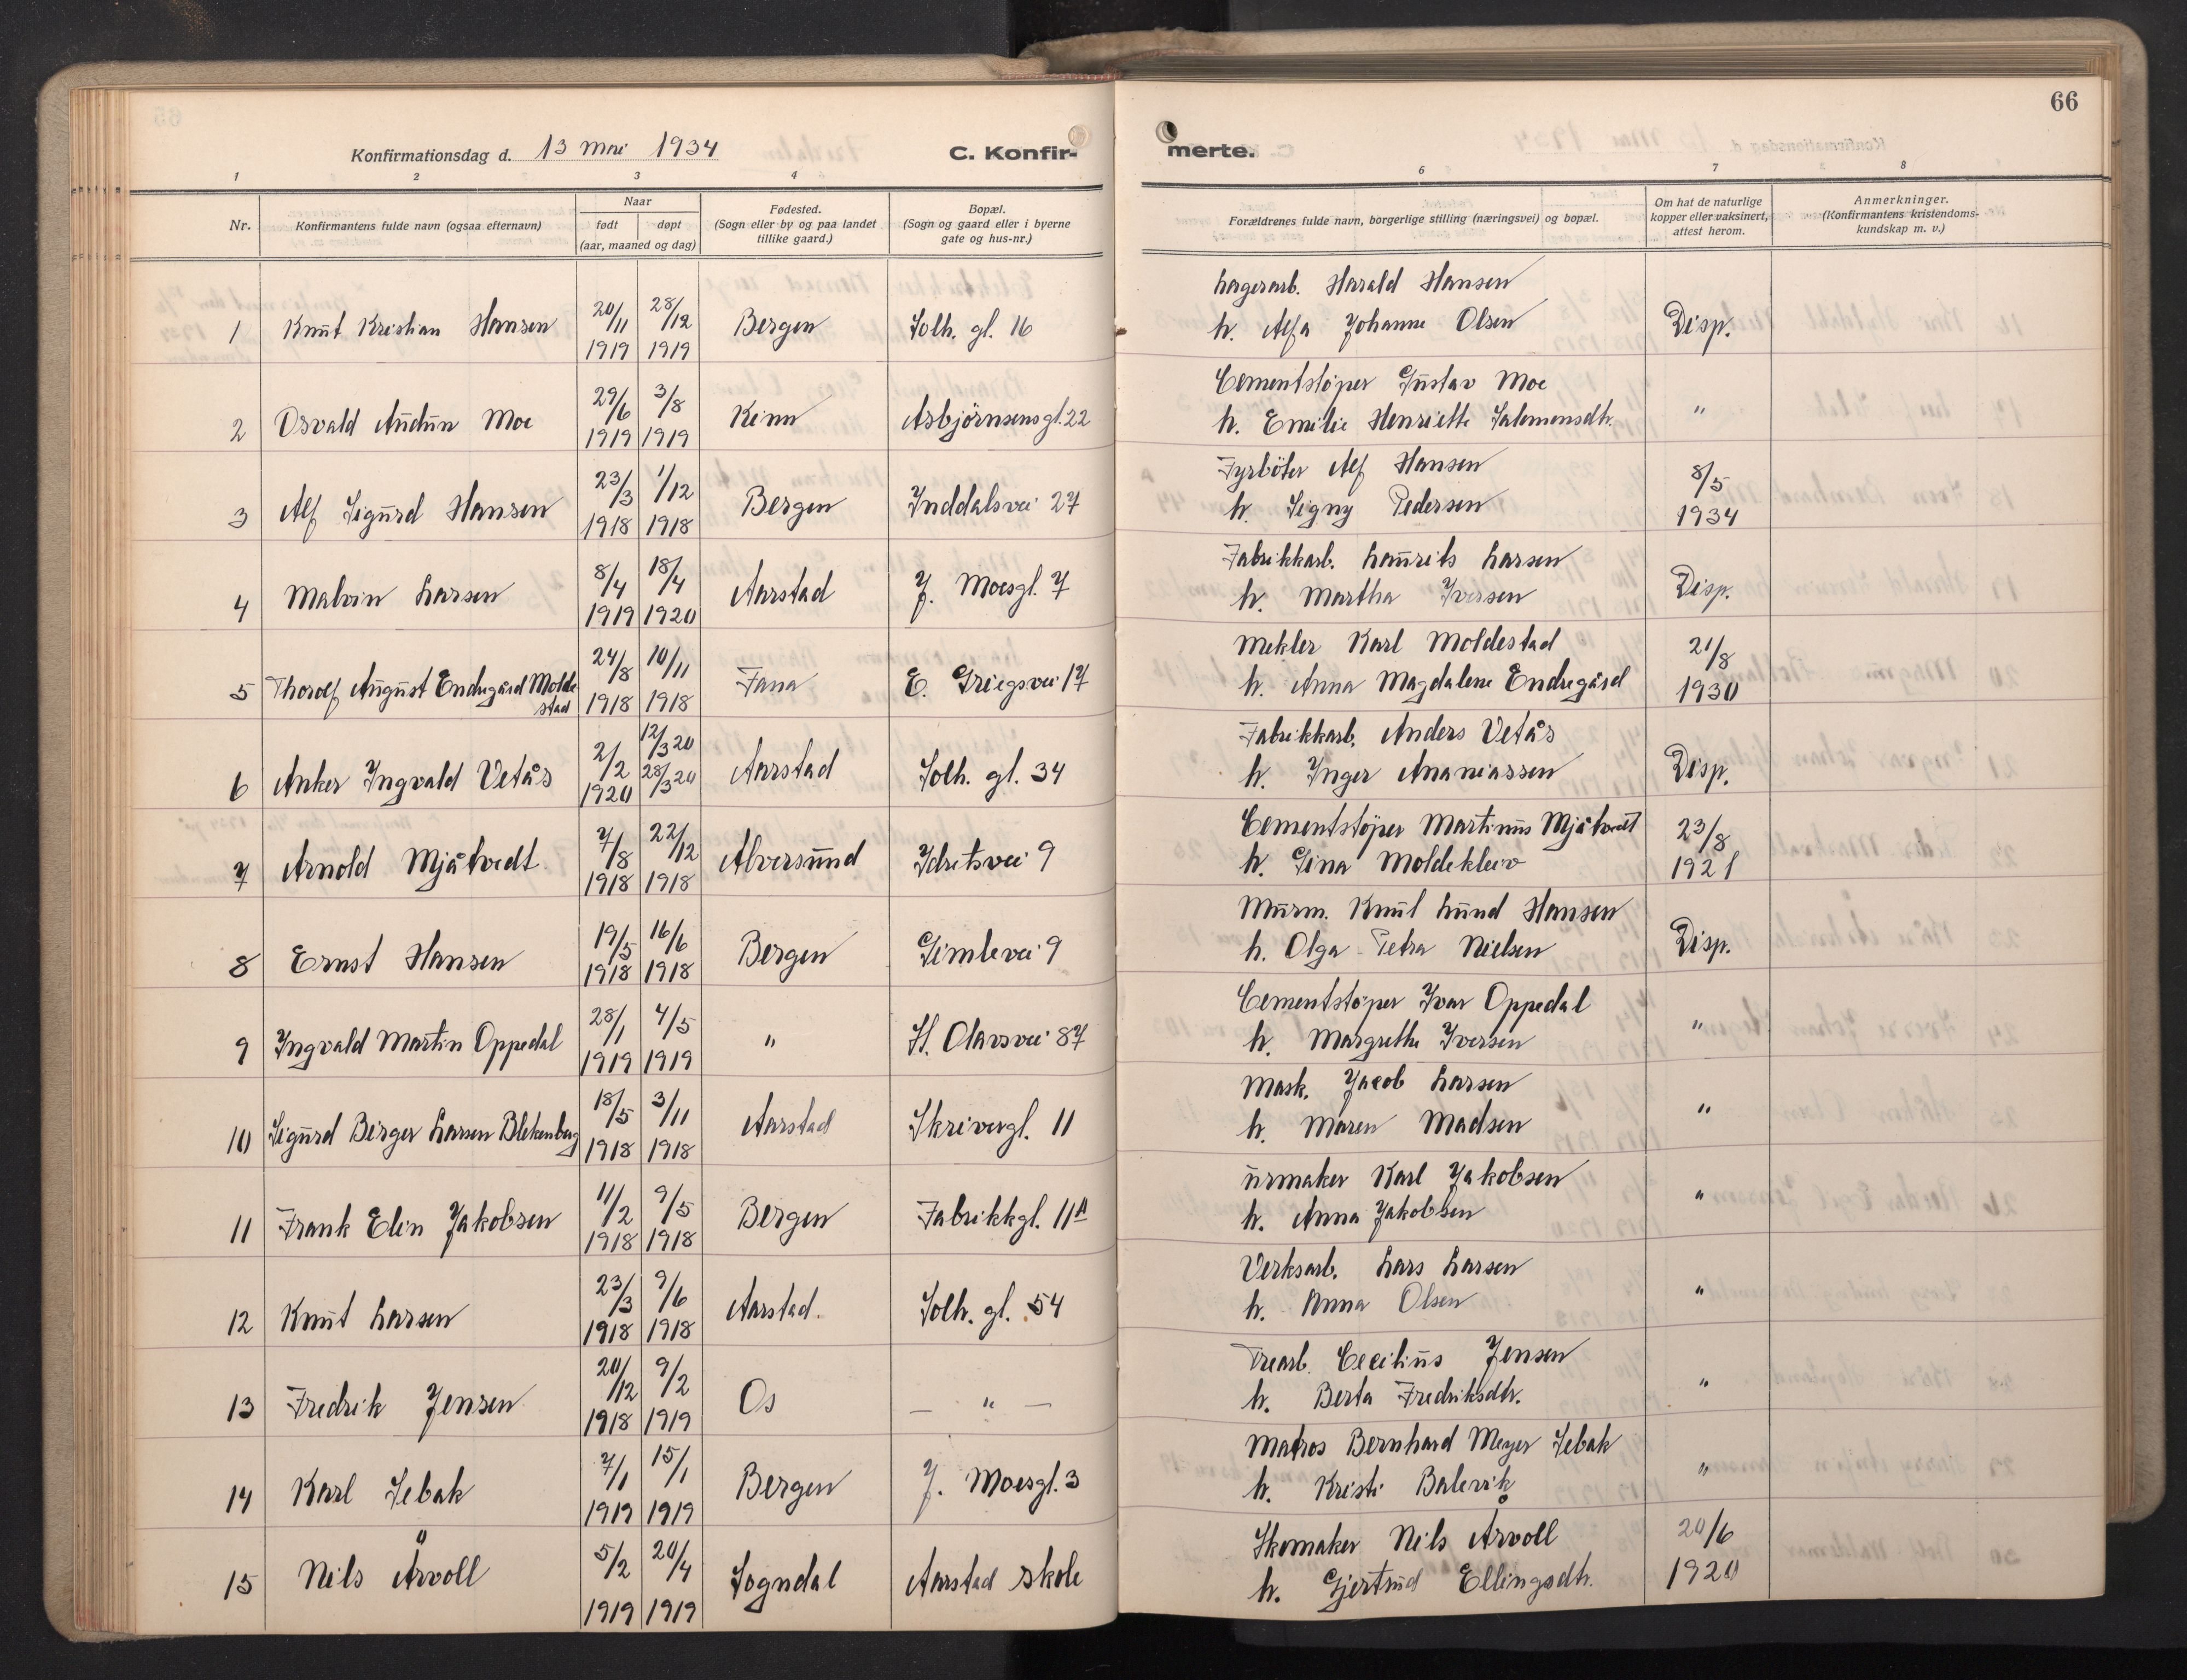 66
Konfirmationsdag d. 13 Mai 1934 C. Konfir- merte.
1 2 3 4 6 7 8
Nr.
Konfirmantens fulde navn (ogsaa efternavn)
Naar
født døpt
(aar, maaned og dag)
Fødested.
(Sogn eller by og paa landet
tillike gaard.)
Bopæl.
(Sogn og gaard eller i byerne
gate og hus-nr.)
Forældrenes fulde navn, borgerlige stilling (næringsvei) og bopæl.
Om hat de naturlige
kopper eller vaksinert,
attest herom.
Anmerkninger.
(Konfirmantens kristendoms-
kundskap m. v.)
Lagerarb. Harald Hansen
1 Knut Kristian Hansen 20/11 1919 28/12 1919 Bergen Solh. gl. 16 h. Alfa Johanne Olsen Disp.
Cementstøper Gustav Moe
2 Osvald Audun Moe 29/6 1919 3/8 1919 Kinn Asbjörnsens gl. 22 h. Emilie Henriette Salomonsdtr. "
Fyrböter Alf Hansen
3 Alf Sigurd Hansen 23/3 1918 1/12 1918 Bergen Inddalsvei 27 h. Signy Pedersen 8/5 1934
Fabrikkarb. Laurits Larsen
4 Malvin Larsen 8/4 1919 18/4 1920 Aarstad J. Moesgl. 7 h. Martha Iversen Disp.
Mekler Karl Moldestad
5 Thorolf August Endregård Molde
stad 24/8 1918 10/11 1918 Fana E. Griegsvei 17 h. Anna Magdalene Endregård 21/8 1930
Fabrikkarb. Anders Vetås
6 Anker Ingvald Vetås 2/2 1920 12/3 20 28/3 20 Aarstad Solh. gl. 34 h. Inger Ananiassen Disp.
Cementstöper Martinus Mjåtvedt
7 Arnold Mjåtvedt 7/8 1918 22/12 1918 Alversund Idretsvei 9 h. Gina Moldekleiv 23/8 1921
Murm. Knut Lund Hansen
8 Ernst Hansen 19/5 1918 16/6 1918 Bergen Gimlevei 9 h. Olga Petra Nielsen Disp.
Cementstøper Ivar Oppedal
9 Ingvald Martin Oppedal 28/1 1919 4/5 1919 " St. Olavsvei 87 h. Margrethe Iversen "
Mask. Jacob Larsen
10 Sigurd Birger Larsen Blekenberg 18/5 1918 3/11 1918 Aarstad Skrivergl. 11 h. Maren Madsen "
Urmaker Karl Jakobsen
11 Frank Elin Jakobsen 11/2 1918 9/5 1918 Bergen Fabrikkgl. 11A h. Anna Jakobsen "
Verksarb. Lars Larsen
12 Knut Larsen 23/3 1918 9/6 1918 Aarstad. Solh. gl. 54 h. Anna Olsen "
Trearb. Cecilius Jensen
13 Fredrik Jensen 20/12 1918 9/2 1919 Os — " — h. Berta Fredriksdtr. "
Matros Bernhard Meyer Sebak
14 Karl Sebak 7/1 1919 15/1 1919 Bergen J. Moesgl. 3 h. Kristi Balevik "
Skomaker Nils Årvoll
15 Nils Årvoll 5/2 1919 20/4 1919 Sogndal Aarstad skole h. Gjertrud Ellingsdtr. 20/6 1920